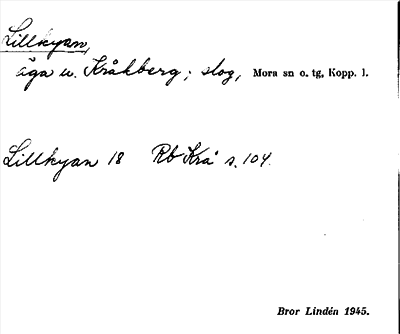 Lillkyan,
äga u. Kråkberg; slog, Mora sn o. tg, Kopp. l.
Lillkyan 18 Rb Krå s. 104.
Bror Lindén 1945.